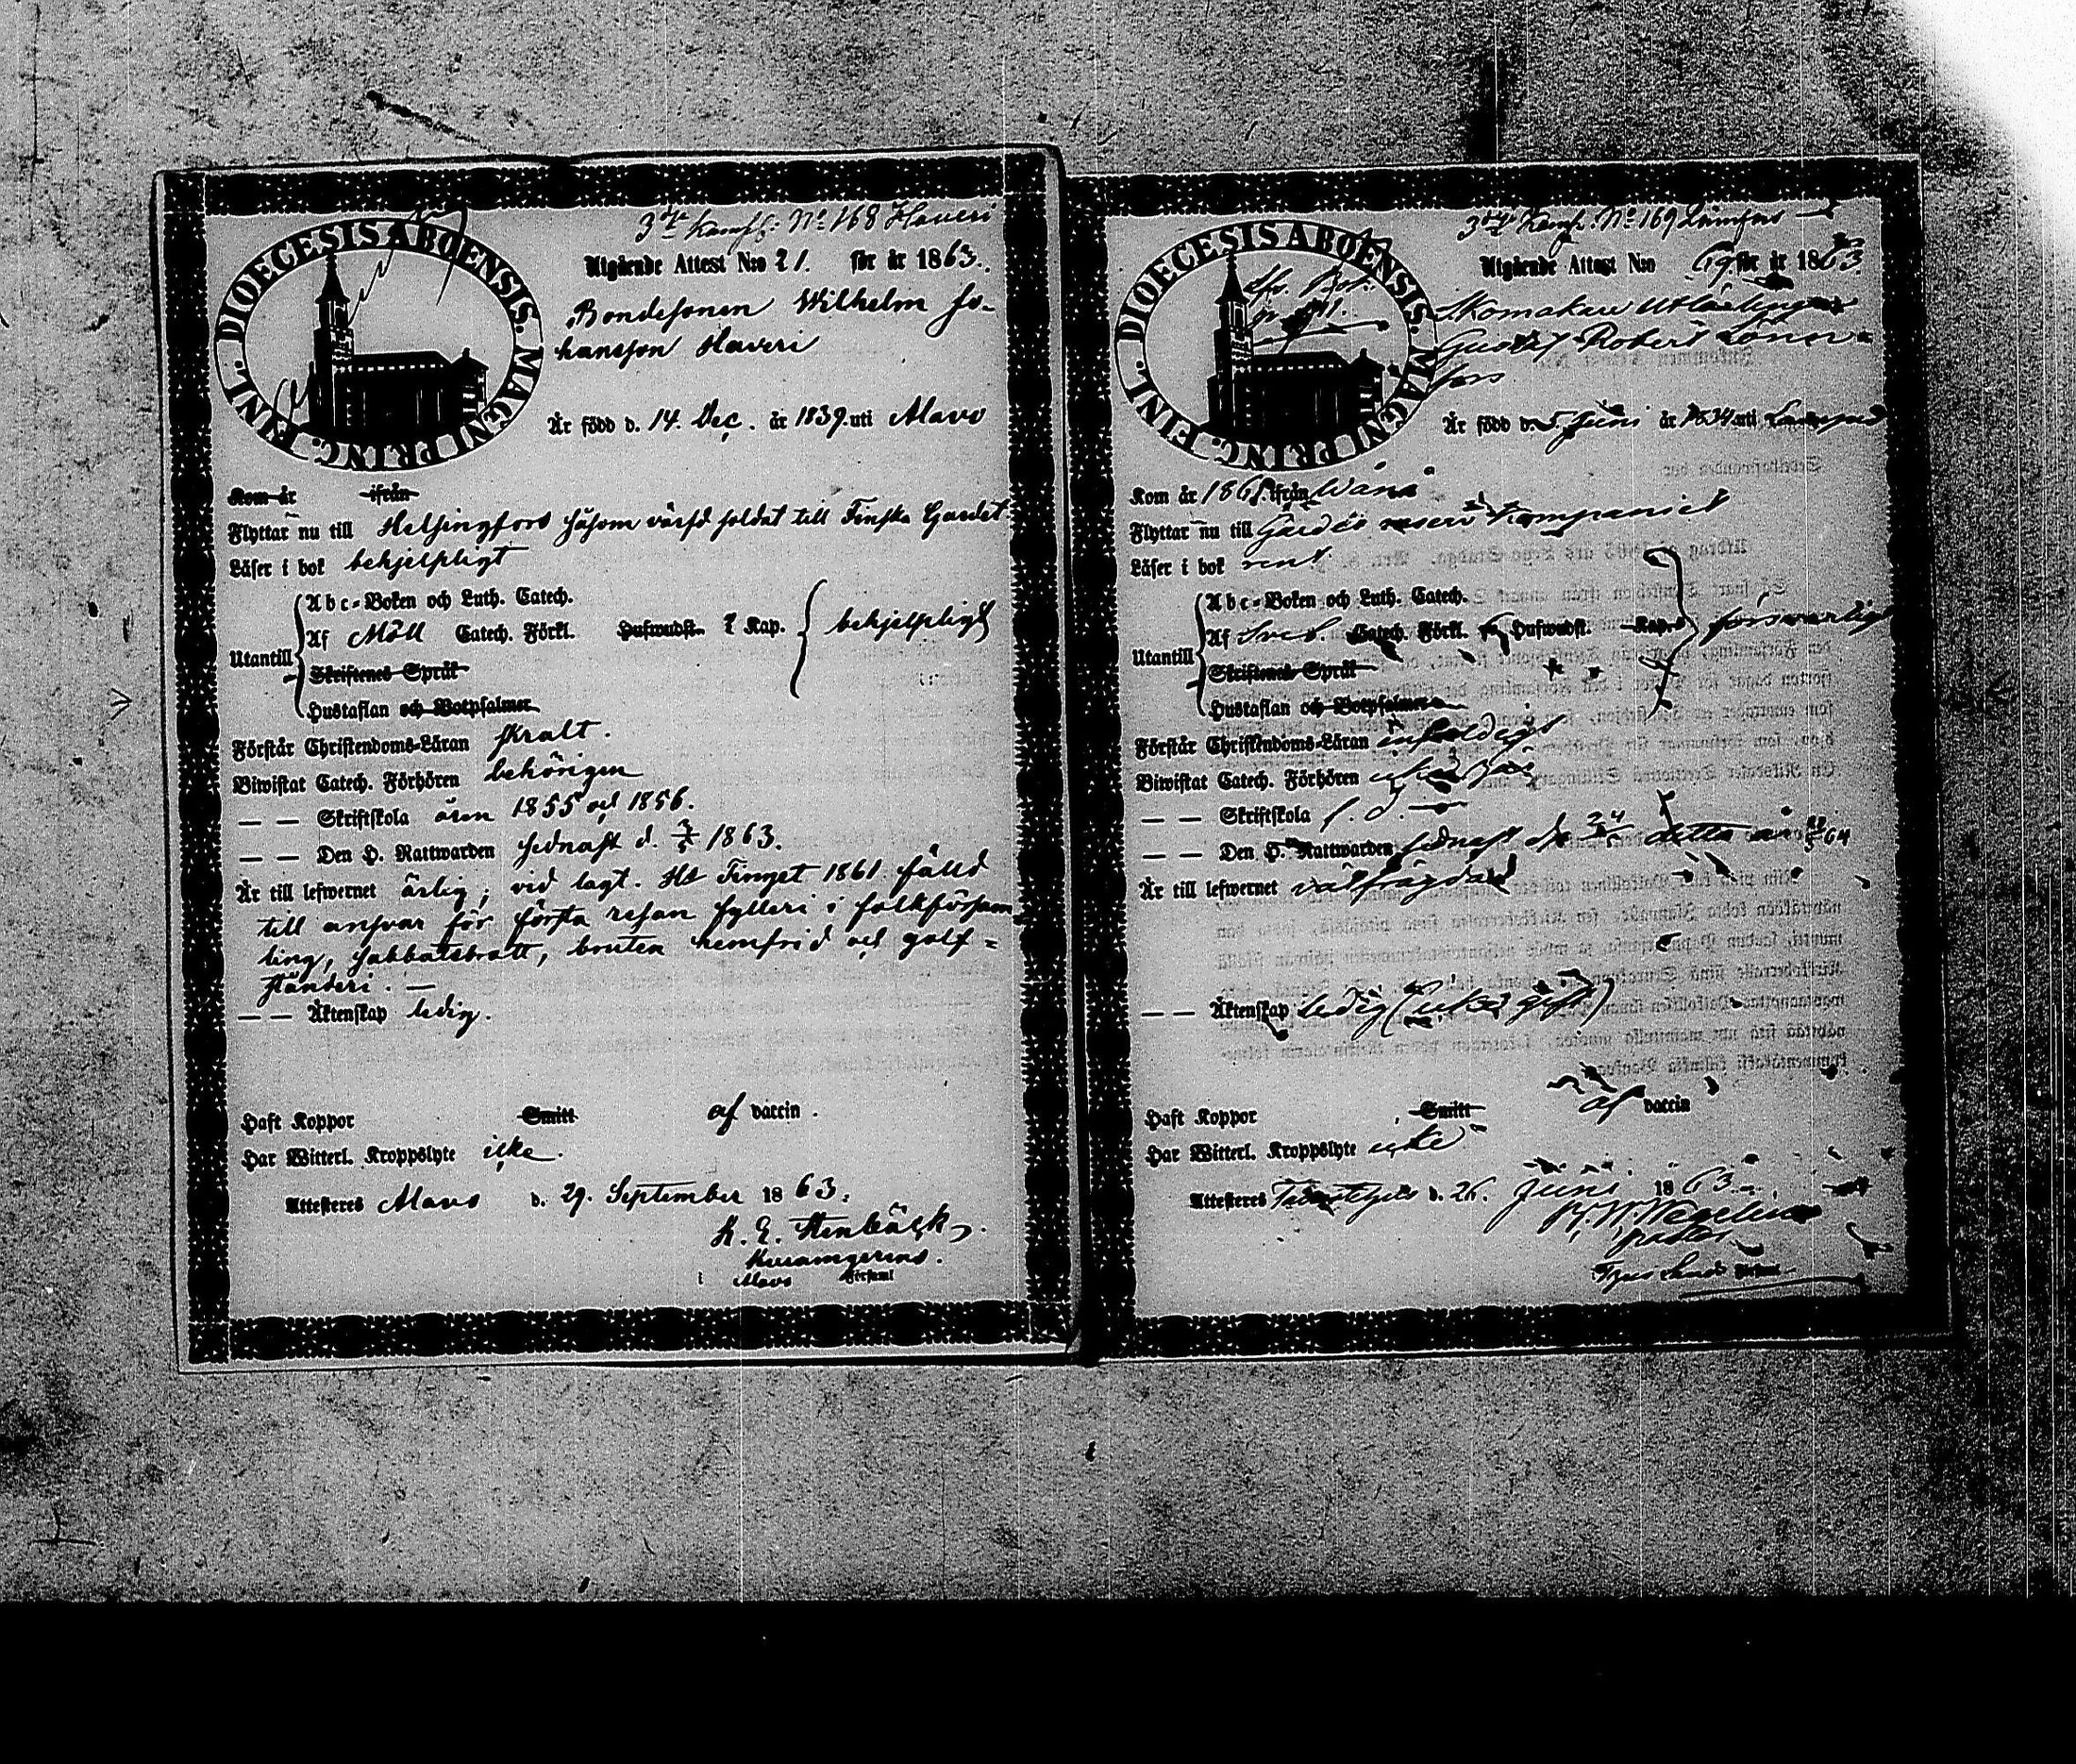 3dje Komp: No 168 Haveri
DIOECESIS ABOENSIS. MAGNI PRINC. FINL.
Utgående Attest N:o 21. för år 1863.
Bondesonen Wilhelm Jo-
hansson Haveri
Är född d. 14. Dec. år 1839 uti Alavo
Kom år ifrån
Flyttar nu till Helsingfors såsom värfd soldat till Finska Gardet
Läser i bok behjelpligt
Utantill
Abc-Boken och Luth. Catech.
Af Möll Catech. Förkl. Hufwudst. 2 Kap. behjelpligt
Skriftenes Språk
Hustaflan och Botpsalmer
Förstår Christendoms-Läran skralt.
Biwistat Catech. Förhören behörigen
— — Skriftskola åren 1855 och 1856.
— — Den H. Nattwarden sednast d. 1863.
Är till lefwernet ärlig; vid lagt. Ht Tinget 1861 fälld
till ansvar för första resan fylleri i folkförsam-
ling, sabbatsbrott, bruten hemfrid och golf-
tänderi. —
— — Äktenskap ledig.
Haft Koppor Smitt af vaccin.
Har Witterl. Kroppslyte icke.
Attesteras Alavo d. 29. September 1863.
K. E. Stenbäck
i Alavo Församl
3dje Komp. No 169 Lönnfors
DIOECESIS ABOENSIS. MAGNI PRINC. FINL.
Utgående Attest N:o 69 för år 1863.
Skomakare
Gustaf Robert Lönn-
fors
Är född d. 5 Juni år 1834 uti
Kom år ifrån Wånå
Flyttar nu till Gardes reserv Kompaniet
Läser i bok rent
Utantill
Abc-Boken och Luth. Catech.
Af Sveb. Catech. Förkl. Hufwudst. Kap. försvarligt
Skriftenes Språk
Hustaflan och Botpsalmer
Förstår Christendoms-Läran enfaldigt
Biwistat Catech. Förhören
— — Skriftskola
— — Den H. Nattwarden sednast den 24 detta år 64
Är till lefwernet välfrägdad
— — Äktenskap ledig (icke gift)
Haft Koppor Smitt af vaccin
Har Witterl. Kroppslyte icke
Attesteras d. 26. Juni 1863.
Församl.